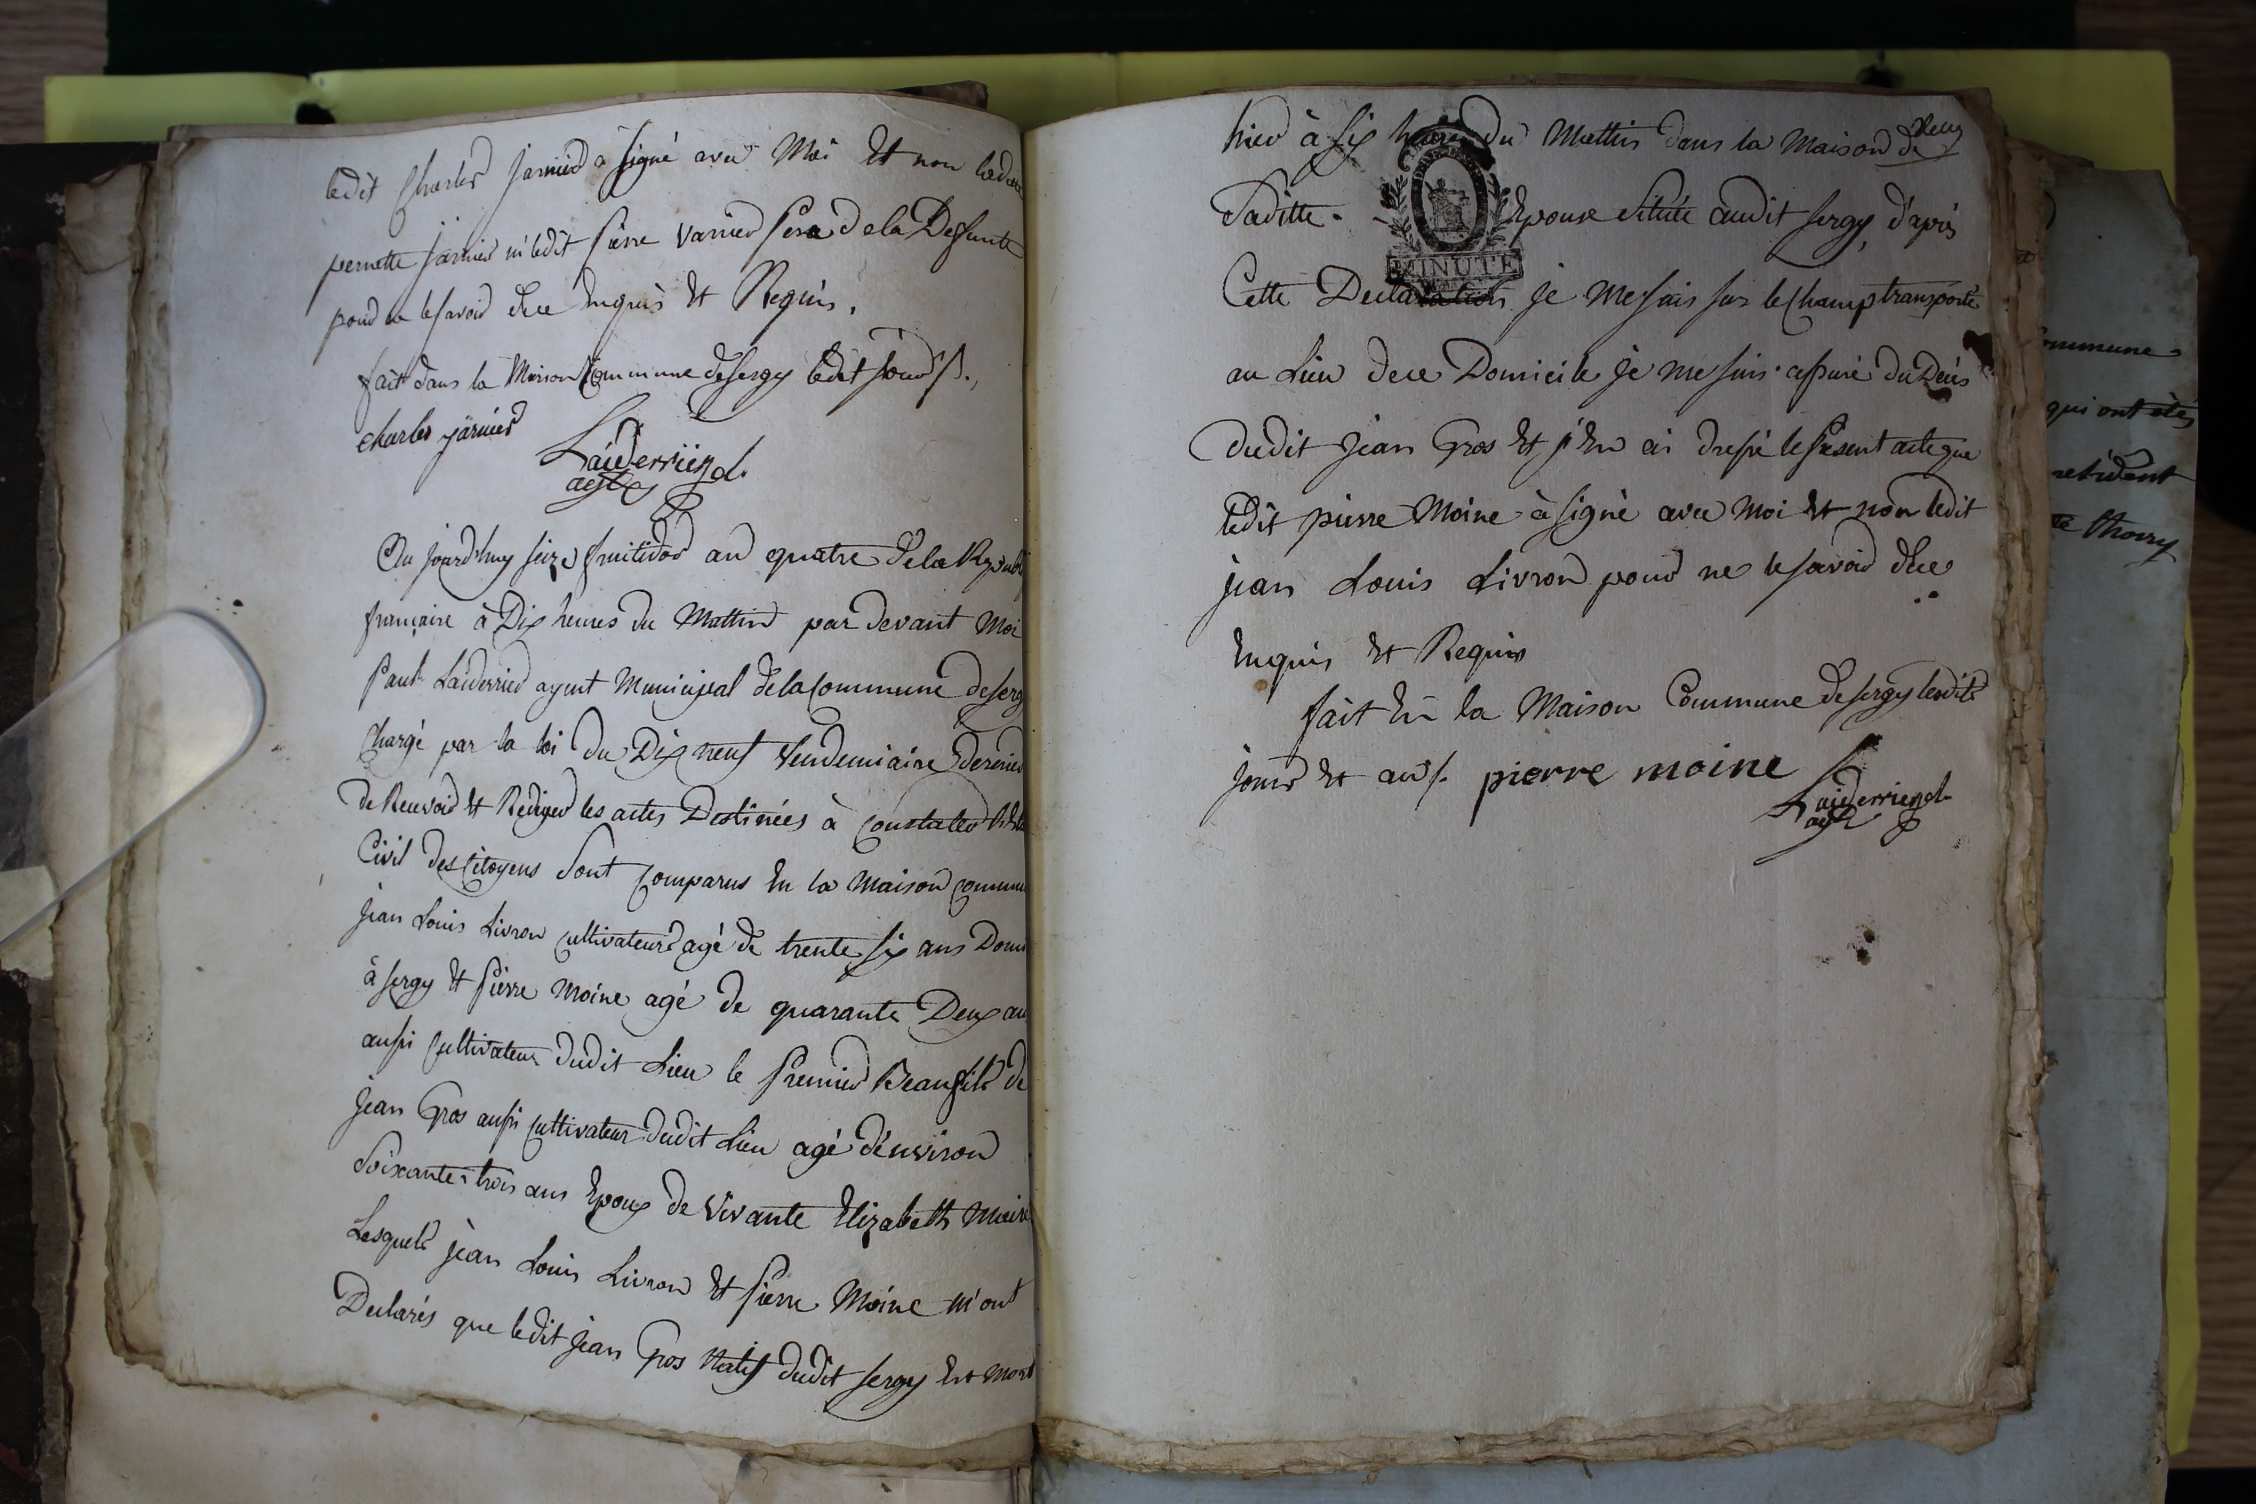 ledit Charles jarnier a signé avec Moi Et non ladite
pernette jarnier ni ledit pierre varnier pere de la Defunte
pour ne le savoir de ce Enquis Et Requis.
fait dans la Maison Commune de sergy ledit jour
charles jarnier
Laiderrier
agt
Au jourd'huy seize fructidor an quatre de la Republ
française à Dix heures du Mattin par devant Moi
Paul Laiderrier agent Municipeal de la Commune de serg
Chargé par la loi du Dix neuf Vendemiaire dernier
de Recevoir Et Rediger les actes Destinées à Constater
Civil des Citoyens sont Comparus En la Maison Commu
jean Louis Livron Cultivateur agé de trente six ans Domi
à sergy Et pierre Moine agé de quarante Deux an
aussi Cultivateur dudit Lieu le premier Beaufils de
jean Gros aussi Cultivateur dudit Lieu agé d'environ
soixante-trois ans Epoux de vivante Elizabeth
Lesquels jean Louis Livron Et pierre Moine m'ont
Declarés que ledit jean Gros Natif dudit sergy Est Mort
hier à six heures du Mattin dans la Maison de
saditte Epouse située audit sergy, d'après
MINUTE
Cette Declaration je me suis sur le Champ transporté
au Lieu de ce Domicile je me suis assuré du Décès
dudit jean Gros Et j'En ai dressé le présent acte que
ledit pierre Moine à signé avec Moi Et non ledit
jean Louis Livron pour ne le savoir de ce
Enquis Et Requis
fait En la Maison Commune de sergy lesdits
jour Et an pierre moine
Laiderrier
agt
ommune
qui ont été